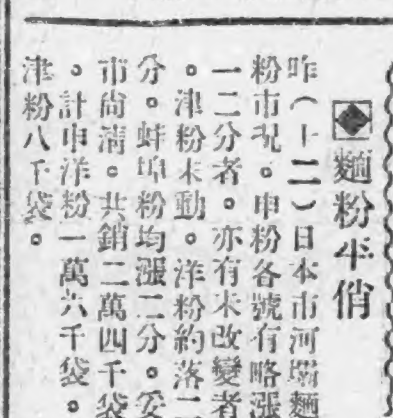 ◆麵粉平俏
昨(十二)日本市河壩麵
粉市況。申粉各號有略漲
一二分者。亦有未改變者
。津粉未動。洋粉約落二
分。蚌埠粉均漲二分。
市尚清。共銷二萬四千袋
。計申洋粉一萬六千袋。
津粉八千袋。